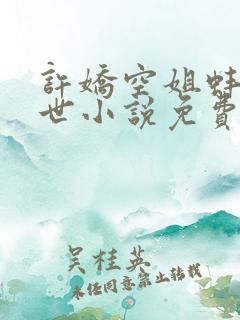 許嬌空姐蚌
世小説免費
吳桂英
未经同意禁止转载